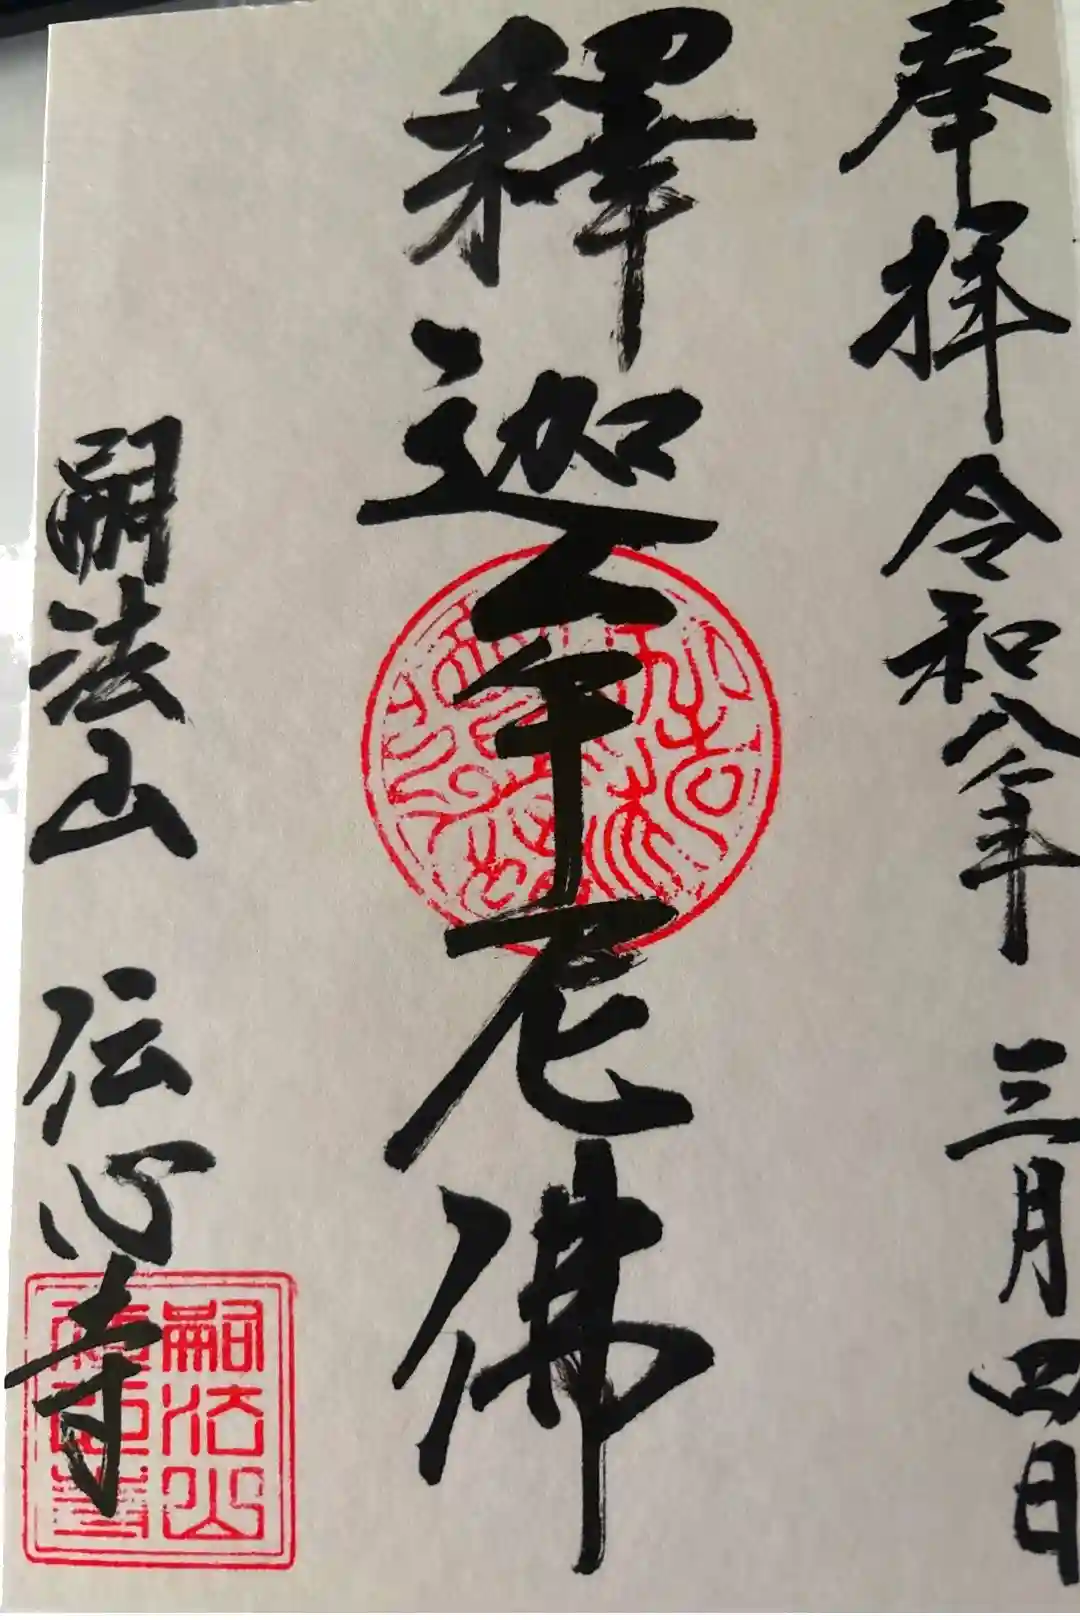 奉拝 令和八年 三月四日
釋迦牟尼佛
嗣法山 伝心寺
嗣法山